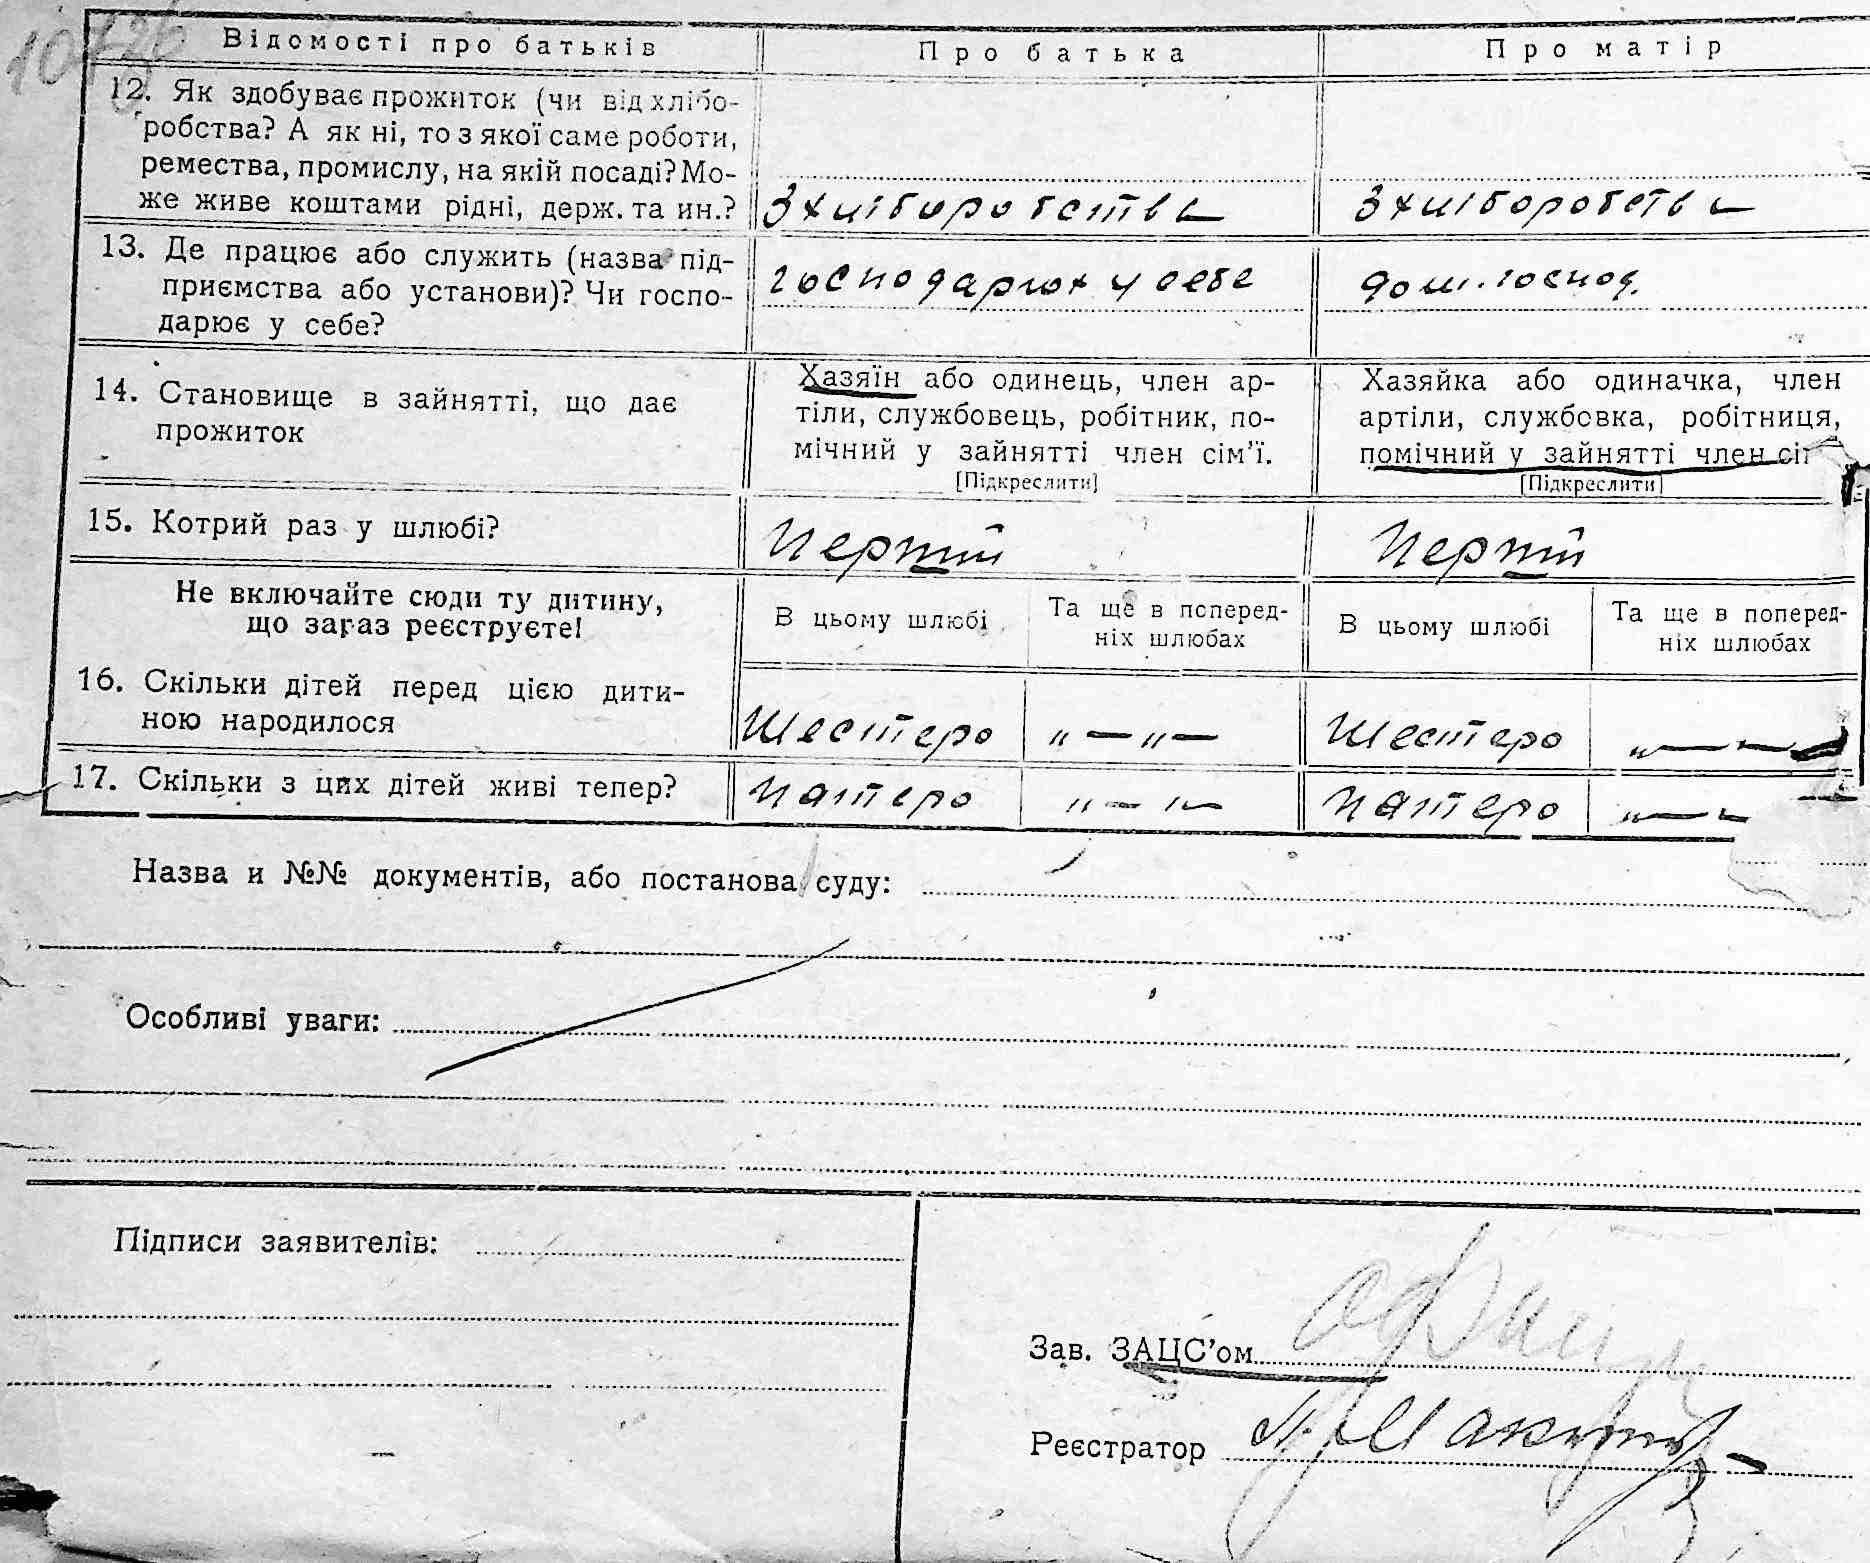 Відомості про батьків
Про батька
Про матір
12. Як здобуває прожиток (чи від хлібо-
робства? А як ні, то з якої саме роботи,
ремества, промислу, на якій посаді? Мо-
же живе коштами рідні, держ. та ин.?
З хліборобства
З хліборобства
13. Де працює або служить (назва під-
приємства або установи)? Чи госпо-
дарює у себе?
господарює у себе
дом. господ.
14. Становище в зайнятті, що дає
прожиток
Хазяїн або одинець, член ар-
тіли, службовець, робітник, по-
мічний у зайнятті член сім'ї.
[Підкреслити]
Хазяйка або одиначка, член
артіли, службовка, робітниця,
помічний у зайнятті член сі
[Підкреслити]
15. Котрий раз у шлюбі?
Перший
Перший
Не включайте сюди ту дитину,
що зараз реєструєте!
В цьому шлюбі
Та ще в поперед-
ніх шлюбах
В цьому шлюбі
Та ще в поперед-
ніх шлюбах
16. Скільки дітей перед цією дити-
ною народилося
Шестеро
„ — „ —
Шестеро
„ — —
17. Скільки з цих дітей живі тепер?
Пятеро
„ — „ —
Пятеро
„ — „
Назва и №№ документів, або постанова суду:
Особливі уваги:
Підписи заявителів:
Зав. ЗАЦС'ом
Реєстратор